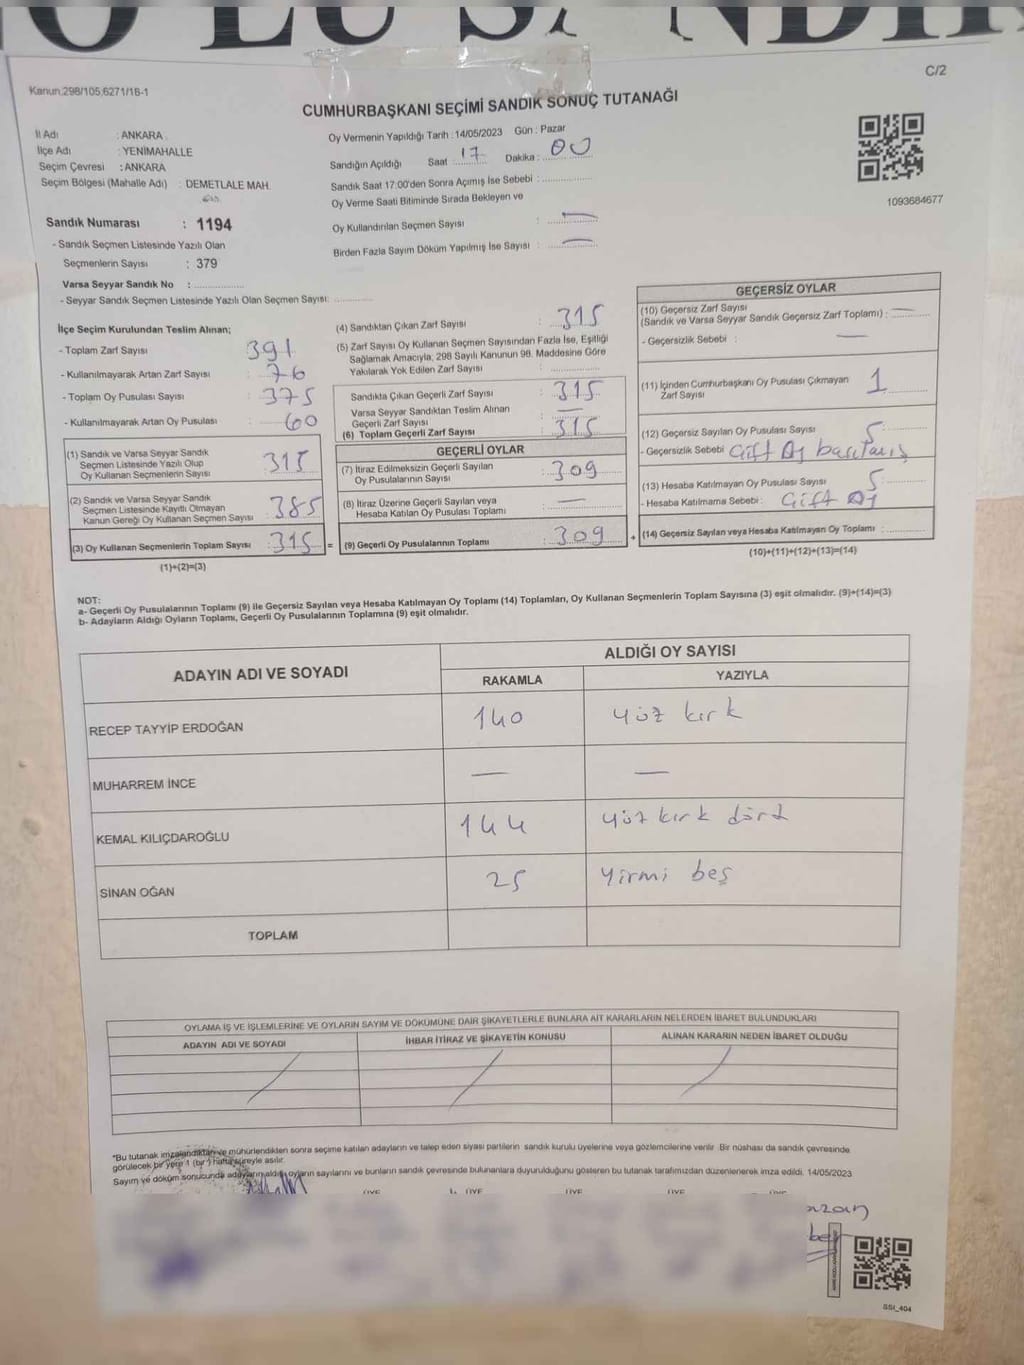 C/2
Kanun.298/105,6271/16-1
CUMHURBAŞKANI SEÇİMİ SANDIK SONUÇ TUTANAĞI
İl Adı : ANKARA
İlçe Adı : YENİMAHALLE
Seçim Çevresi : ANKARA
Seçim Bölgesi (Mahalle Adı) : DEMETLALE MAH.
Sandık Numarası : 1194
- Sandık Seçmen Listesinde Yazılı Olan
Seçmenlerin Sayısı : 379
Varsa Seyyar Sandık No :
- Seyyar Sandık Seçmen Listesinde Yazılı Olan Seçmen Sayısı:
Oy Vermenin Yapıldığı Tarih : 14/05/2023 Gün : Pazar
Sandığın Açıldığı Saat : 17 Dakika : 00
Sandık Saat 17.00'den Sonra Açımış İse Sebebi :
Oy Verme Saati Bitiminde Sırada Bekleyen ve
Oy Kullandırılan Seçmen Sayısı : —
Birden Fazla Sayım Döküm Yapılmış İse Sayısı : —
1093684677
İlçe Seçim Kurulundan Teslim Alınan;
- Toplam Zarf Sayısı : 391
- Kullanılmayarak Artan Zarf Sayısı : 76
- Toplam Oy Pusulası Sayısı : 375
- Kullanılmayarak Artan Oy Pusulası : 60
(1) Sandık ve Varsa Seyyar Sandık
Seçmen Listesinde Yazılı Olup
Oy Kullanan Seçmenlerin Sayısı : 315
(2) Sandık ve Varsa Seyyar Sandık
Seçmen Listesinde Kayıtlı Olmayan
Kanun Gereği Oy Kullanan Seçmen Sayısı : 385
(3) Oy Kullanan Seçmenlerin Toplam Sayısı : 315 =
(1)+(2)=(3)
(4) Sandıktan Çıkan Zarf Sayısı : 315
(5) Zarf Sayısı Oy Kullanan Seçmen Sayısından Fazla İse, Eşitliği
Sağlamak Amacıyla, 298 Sayılı Kanunun 98. Maddesine Göre
Yakılarak Yok Edilen Zarf Sayısı :
Sandıkta Çıkan Geçerli Zarf Sayısı : 315
Varsa Seyyar Sandıktan Teslim Alınan
Geçerli Zarf Sayısı : —
(6) Toplam Geçerli Zarf Sayısı : 315
GEÇERLİ OYLAR
(7) İtiraz Edilmeksizin Geçerli Sayılan
Oy Pusulasının Sayısı : 309
(8) İtiraz Üzerine Geçerli Sayılan veya
Hesaba Katılan Oy Pusulası Toplamı : —
(9) Geçerli Oy Pusulalarının Toplamı : 309 +
GEÇERSİZ OYLAR
(10) Geçersiz Zarf Sayısı
(Sandık ve Varsa Seyyar Sandık Geçersiz Zarf Toplamı) : —
- Geçersizlik Sebebi : —
(11) İçinden Cumhurbaşkanı Oy Pusulası Çıkmayan
Zarf Sayısı : 1
(12) Geçersiz Sayılan Oy Pusulası Sayısı : 5
- Geçersizlik Sebebi : Çift Oy basılmış
(13) Hesaba Katılmayan Oy Pusulası Sayısı : 5
- Hesaba Katılmama Sebebi : Çift Oy
(14) Geçersiz Sayılan veya Hesaba Katılmayan Oy Toplamı :
(10)+(11)+(12)+(13)=(14)
NOT:
a- Geçerli Oy Pusulalarının Toplamı (9) ile Geçersiz Sayılan veya Hesaba Katılmayan Oy Toplamı (14) Toplamları, Oy Kullanan Seçmenlerin Toplam Sayısına (3) eşit olmalıdır. (9)+(14)=(3)
b- Adayların Aldığı Oyların Toplamı, Geçerli Oy Pusulalarının Toplamına (9) eşit olmalıdır.
ADAYIN ADI VE SOYADI
ALDIĞI OY SAYISI
RAKAMLA YAZIYLA
RECEP TAYYİP ERDOĞAN 140 yüz kırk
MUHARREM İNCE — —
KEMAL KILIÇDAROĞLU 144 yüz kırk dört
SİNAN OĞAN 25 yirmi beş
TOPLAM
OYLAMA İŞ VE İŞLEMLERİNE VE OYLARIN SAYIM VE DÖKÜMÜNE DAİR ŞİKAYETLERLE BUNLARA AİT KARARLARIN NELERDEN İBARET BULUNDUKLARI
ADAYIN ADI VE SOYADI İHBAR İTİRAZ VE ŞİKAYETİN KONUSU ALINAN KARARIN NEDEN İBARET OLDUĞU
"Bu tutanak imzalandıktan ve mühürlendikten sonra seçime katılan adayların ve talep eden siyasi partilerin sandık kurulu üyelerine veya gözlemcilerine verilir. Bir nüshası da sandık çevresinde
görülecek bir yere 1 (bir) hafta süreyle asılır.
Sayım ve döküm sonucunda adayların aldığı oyların sayılarını ve bunların sandık çevresinde bulunanlara duyurulduğunu gösteren bu tutanak tarafımızdan düzenlenerek imza edildi. 14/05/2023
ÜYE ÜYE ÜYE ÜYE ÜYE
SSI_404